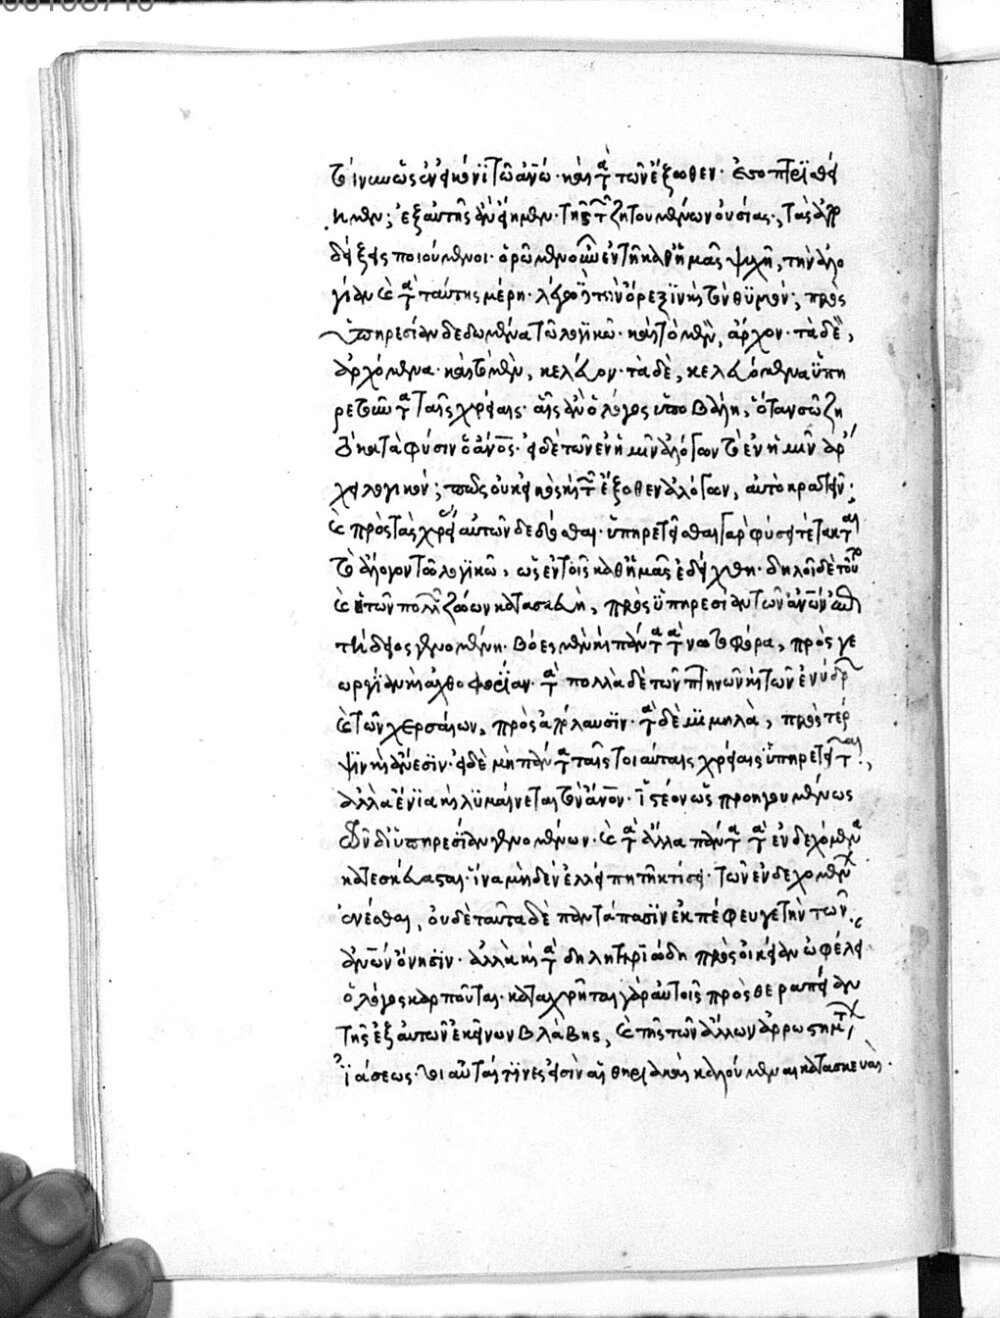 τοίνυν ὡς ἐν εἰκόνι τῶ ἀνω· καὶ τὰ τῶν ἔξωθεν· ἐποπτεῖ
μεν; ἐξ αὐτῆς ἂν εἴημεν τῆς τῶν ζητουμένων οὐσίας, τὰς ἀπο
δείξεις ποιούμενοι· ὁρῶμεν οὖν ἐν τῆ καθ' ἡμᾶς ψυχῆ, τὴν ἀλο
γίαν καὶ τὰ ταύτης μέρη· λέγω ὄρεξϊν καὶ τὸν θϋμόν, πρὸς
ὑπηρεσίαν δεδομένα τῶ λογϊκῶ· καὶ τὸ μὲν, ἄρχον· τὰ δὲ,
ἀρχόμενα· καὶ τὸ μὲν, κελεῦον· τὰ δὲ, κελευόμενα ὑπη
ρετοῦντα ταῖς χρείαις· αἷς ἂν ὁ λόγος ὑποβάλη, ὅταν σώζη
τὸ κατὰ φύσιν ὁ ἄνος· εἰ δὲ τῶν ἐν ἡμῖν ἀλόγων τὸ ἐν ἡμῖν ἄρ
χει λογικόν; πῶς οὐκ εἰκὸς καὶ τῶν ἔξωθεν ἀλόγων, αὐτὸ κρατεῖν·
καὶ πρὸς τὰς χρείας αὐτῶν δεδόσθαι· ὑπηρετεῖσθαι γὰρ φύσει τέτακται
τὸ ἄλογον τῶ λογϊκῶ, ὡς ἐν τοῖς καθ' ἡμᾶς ἐδείχθη· δηλοῖ δὲ τοῦτο
καὶ ἡ τῶν πολλῶν ζώων κατασκευὴ, πρὸς ὑπηρεσίαν τῶν ἀνων ἐπι
τηδείως γενομένη· βόες μὲν καὶ πάντα τὰ νωτοφόρα, πρὸς γε
ωργϊαν καὶ ἀχθοφορϊαν· τὰ πολλὰ δὲ τῶν πτηνῶν καὶ τῶν ἐνύδρων
καὶ τῶν χερσαίων, πρὸς ἀπόλαυσϊν· τὰ δὲ μϊμηλὰ, πρὸς τέρ
ψϊν καὶ ἄνεσϊν· εἰ δὲ μὴ πάντα ταῖς τοιαύταις χρείαις ὑπηρετεῖται,
ἀλλὰ ἔνϊα καὶ λϋμαίνεται τὸν ἄνον· ἰστέον ὡς προηγουμένως
τῶν δι' ὑπηρεσϊαν γενομένων· καὶ τὰ ἄλλα πάντα τὰ ἐνδεχόμενα
κατεσκεύασται· ἵνα μηδὲν ἐλλείπη τῆ κτίσει· τῶν ἐνδεχομένων
γενέσθαι, οὐδὲ ταῦτα δὲ παντάπασϊν ἐκπέφευγε τὴν τῶν
ἀνων ὄνησϊν· ἀλλὰ καὶ τὰ δηλητηρϊώδη πρὸς οἰκείαν ὠφέλει
ὁ λόγος καρποῦται· καταχρῆται γὰρ αὐτοῖς πρὸς θεραπείαν
τῆς ἐξ αὐτῶν ἐκείνων βλάβης, καὶ τῆς τῶν ἄλλων ἀρρωστημάτων
ἰάσεως· τοιαῦταί τϊνές εἰσϊν αἱ θηριακαὶ καλούμεναι κατασκευὰι.